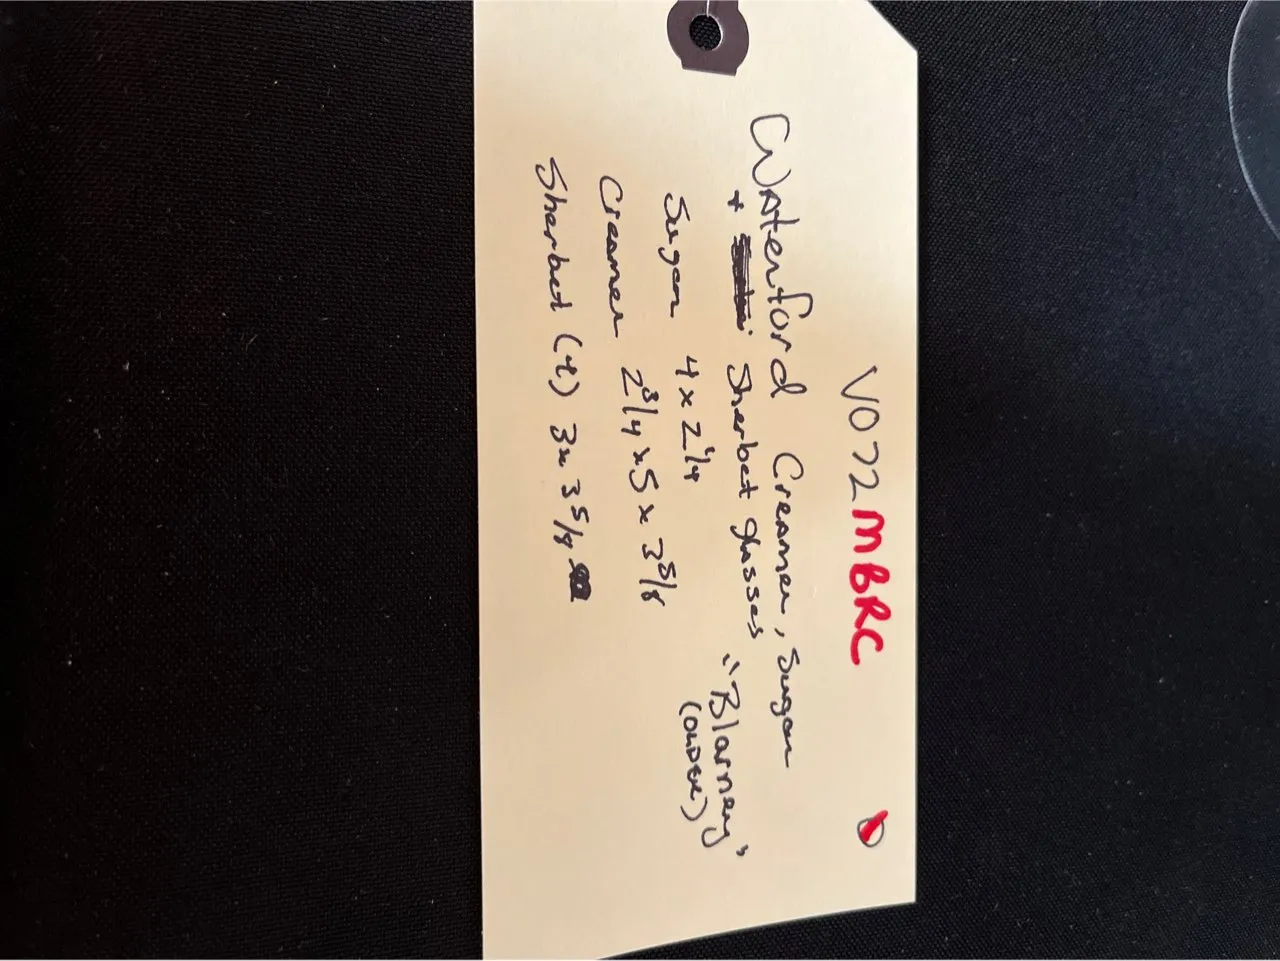 V072 MBRC
Waterford Creamer, Sugar
+ Sherbet glasses "Blarney"
(OLDER)
Sugar 4 x 2 1/4
Creamer 2 3/4 x 5 x 3 5/8
Sherbet (4) 3 x 3 5/8